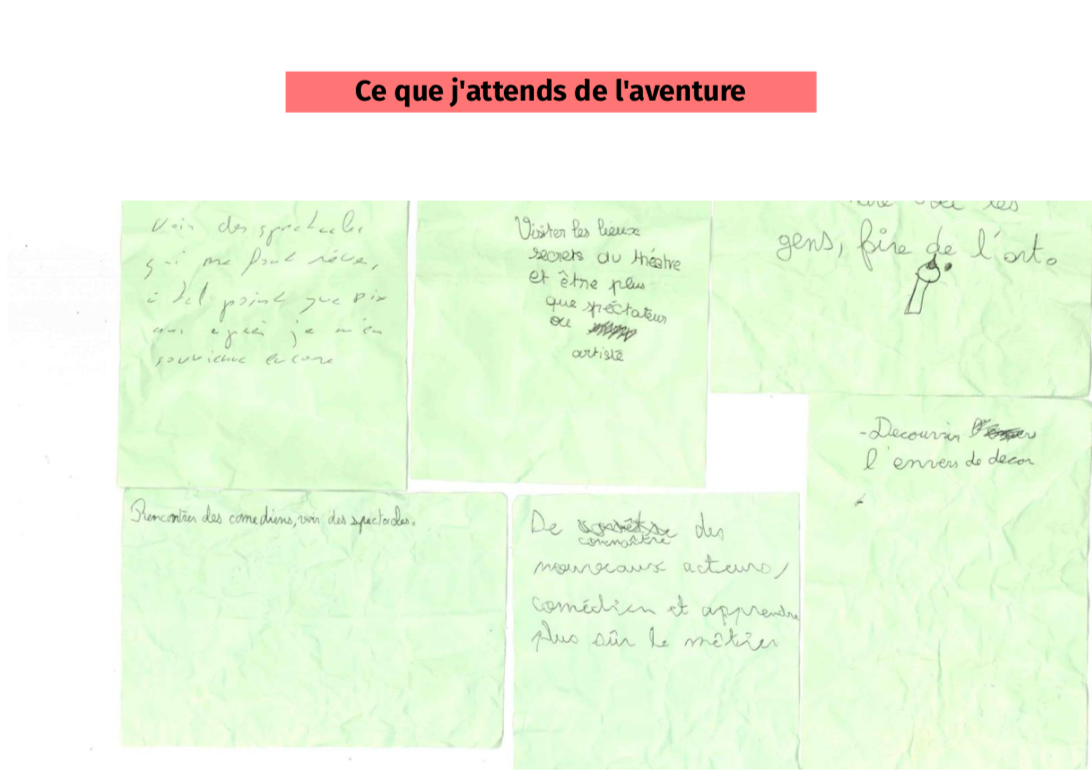 Ce que j'attends de l'aventure
Voir des spectacles
qui me font rêver,
à tel point que dix
ans après je m'en
souvienne encore
Visiter les lieux
secrets du théatre
et être plus
que spéctateur
ou
artiste
les
gens, fire de l'art.
-Decouvrir
l'envers de decor
Rencontrer des comediens, voir des spectacles.
De connaître des
nouveaux acteurs,
comédien et apprendre
plus sûr le mêtier